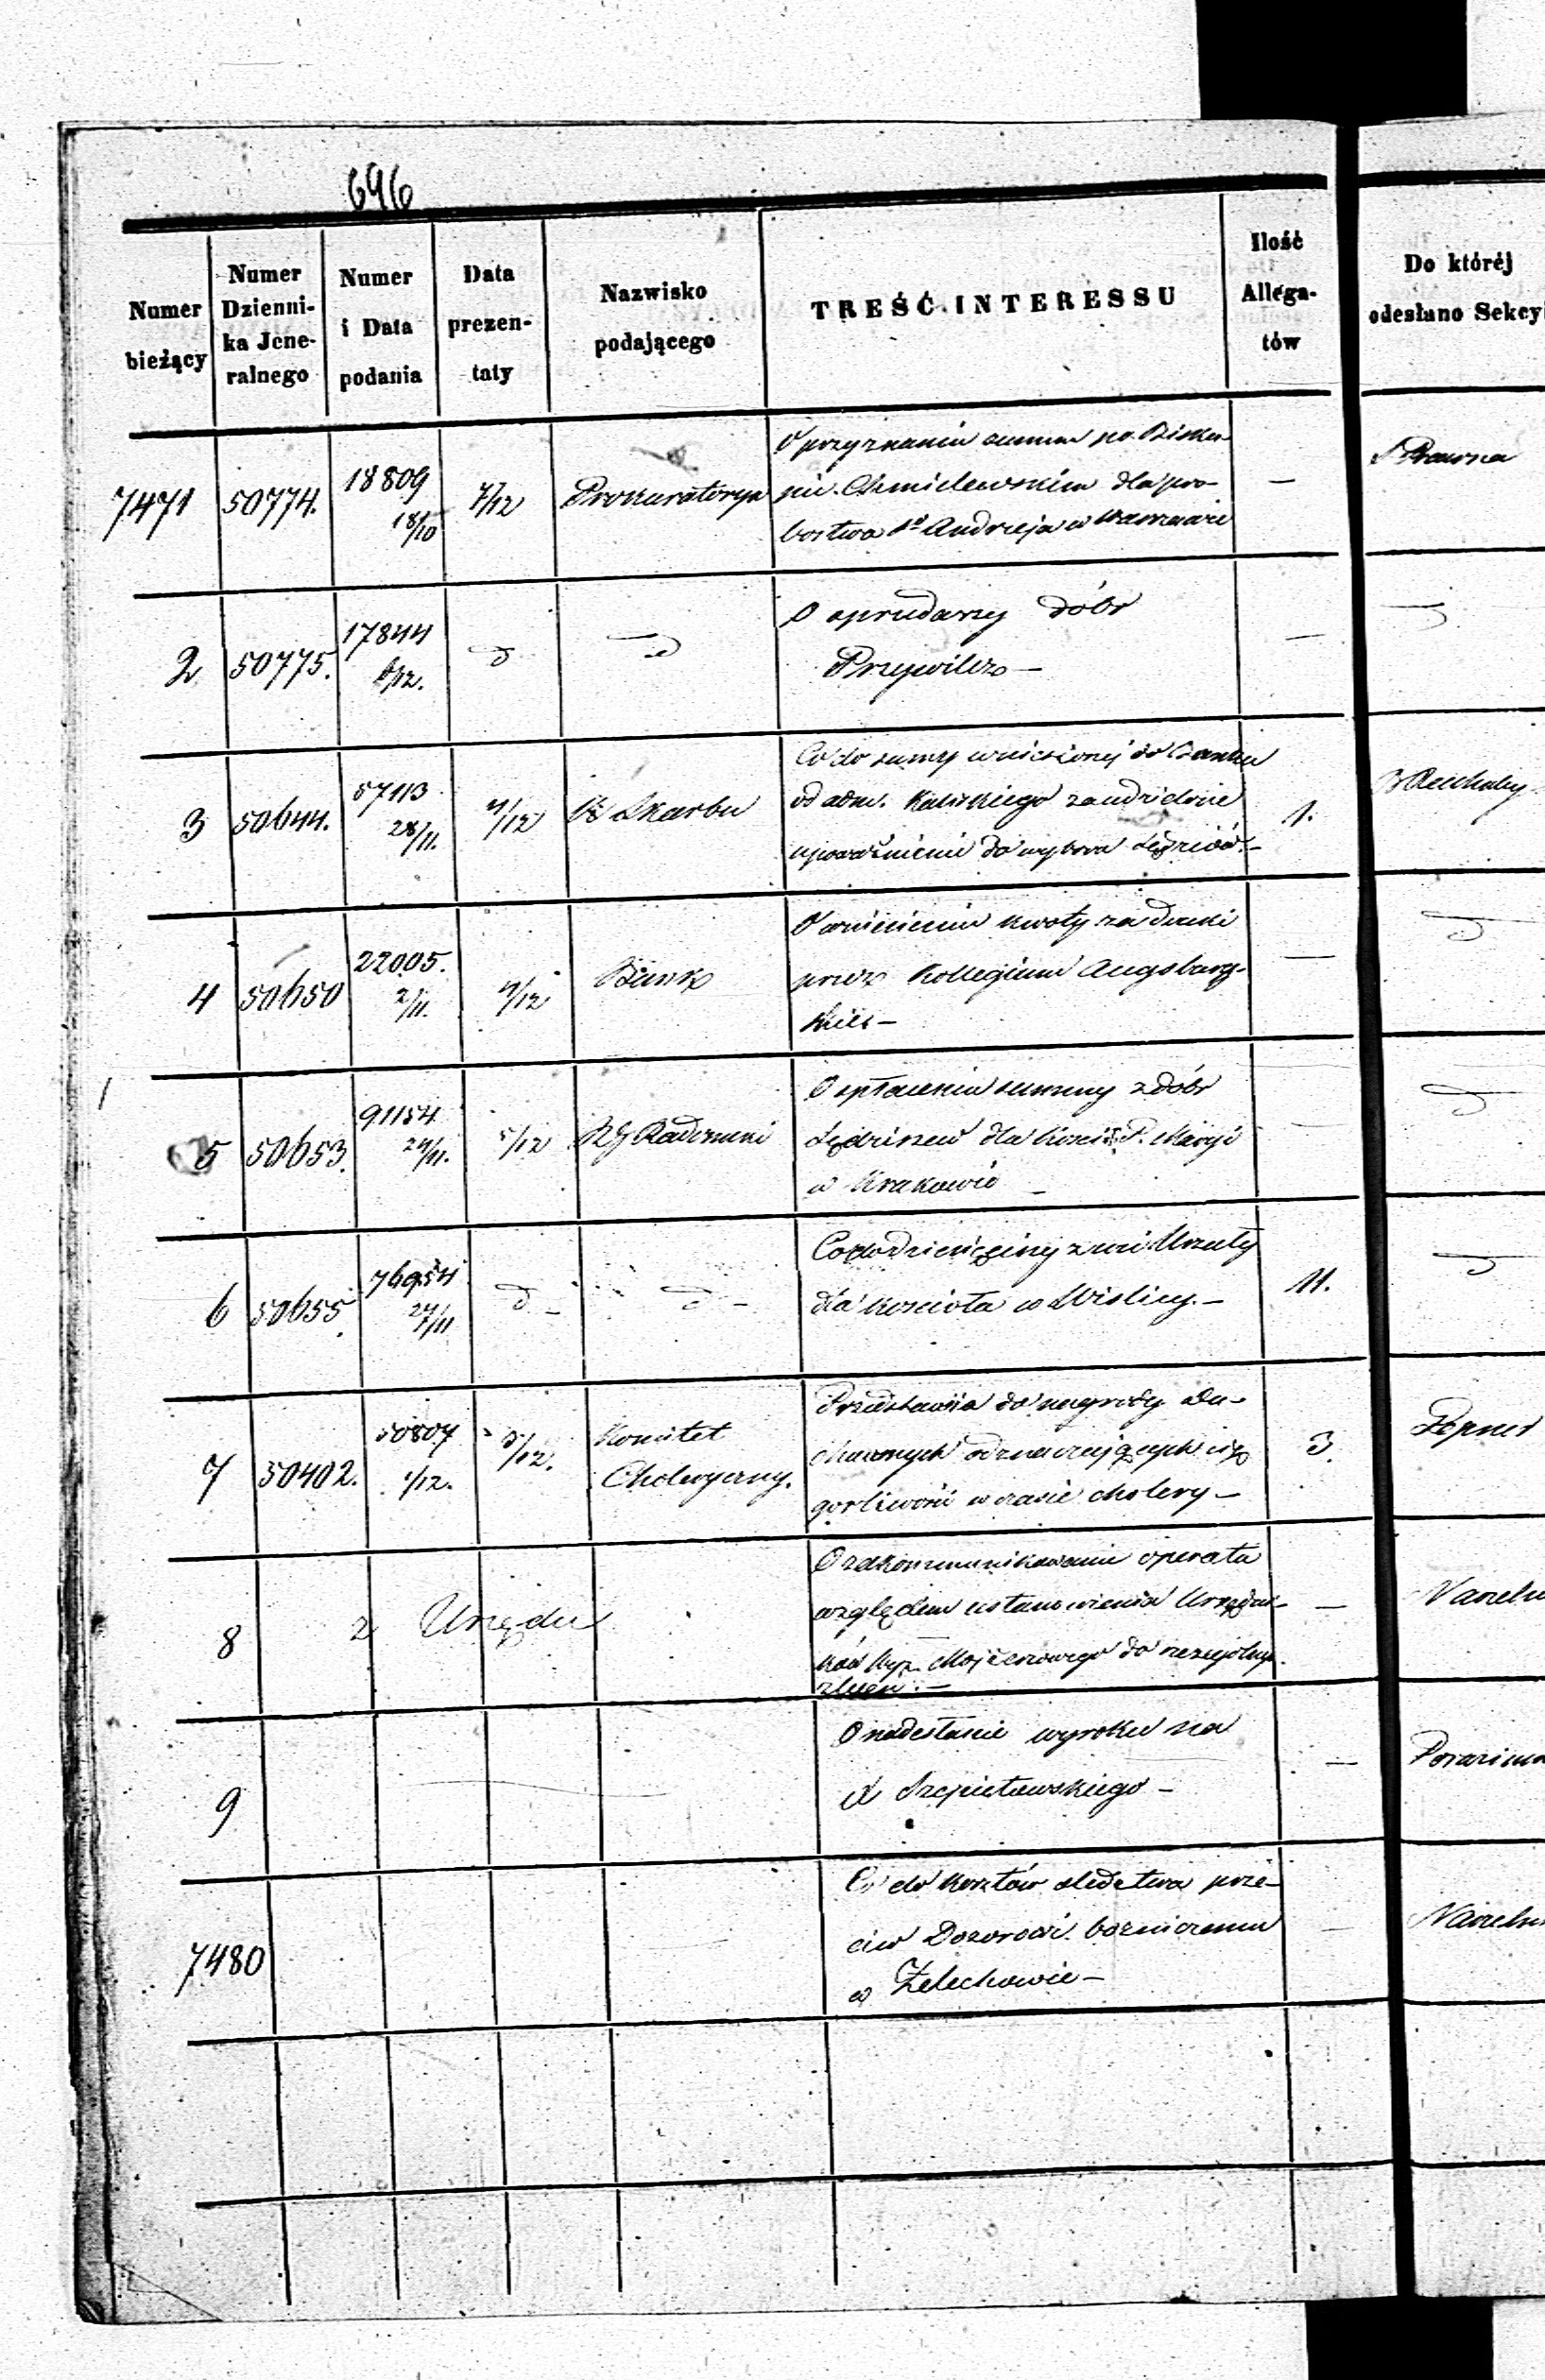 696
Numer bieżący
Numer Dzienni-ka Jene-ralnego
Numer i Data podania
Data prezen-taty
Nazwisko podającego
TREŚĆ INTERESSU
Ilość Allega-tów
Do któréj odesłano Sekcyi
7471 50774. 18809 18/10 7/12 Prokuratorya
O przyznaniu summ po Bisku-
pie Chmielewskim dla pro-
bostwa Sgo Andrzeja w Warszawie
— S Prawna
2 50775. 17844 /12. d d
O sprzedarzy dóbr
Przywilcz —
— d
3 50644. 57113 28/11. 4/12 Skarbu
Co do sumy wniesionej do Banku
od adm. Kaliskiego za udzielenie
upoważnienia do wyboru Sędziów. —
1.
4 50650 22005. 2/11. 4/12 Bank
O wniesieniu kwoty za druki
przez Kollegium Augsburg-
skie —
— d
5 50653. 91154 24/11. 5/12 RG Radomski
O spłaceniu summy z dóbr
dla Kościł. P. Maryi
w Krakowie —
— d
6 50655. 76954 24/11 d — d —
Co do dziesięciny z wsi
dla kościoła w Wiślicy. —
11. d
7 50402. 50807 1/12. 3/12. Komitet
Choleryczny.
Przedstawia do nagrody Du-
chownych odznaczających się
gorliwością w czasie cholery —
3. Pepner
8 z Urzędu
O zakommunikowanie operatu
względem ustanowienia Urzędni-
ków Wyz. Mojżeszowego do szczególnych
zleceń. —
—
9
O nadesłanie wyroku na
X Szepietowskiego —
—
7480
Co do kosztów śledztwa prze-
ciw Dozorowi bożniczemu
w Żelechowie —
—